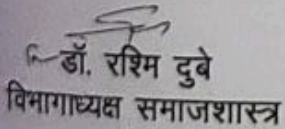 डॉ. रश्मि दुबे
विभागाध्यक्ष समाजशास्त्र